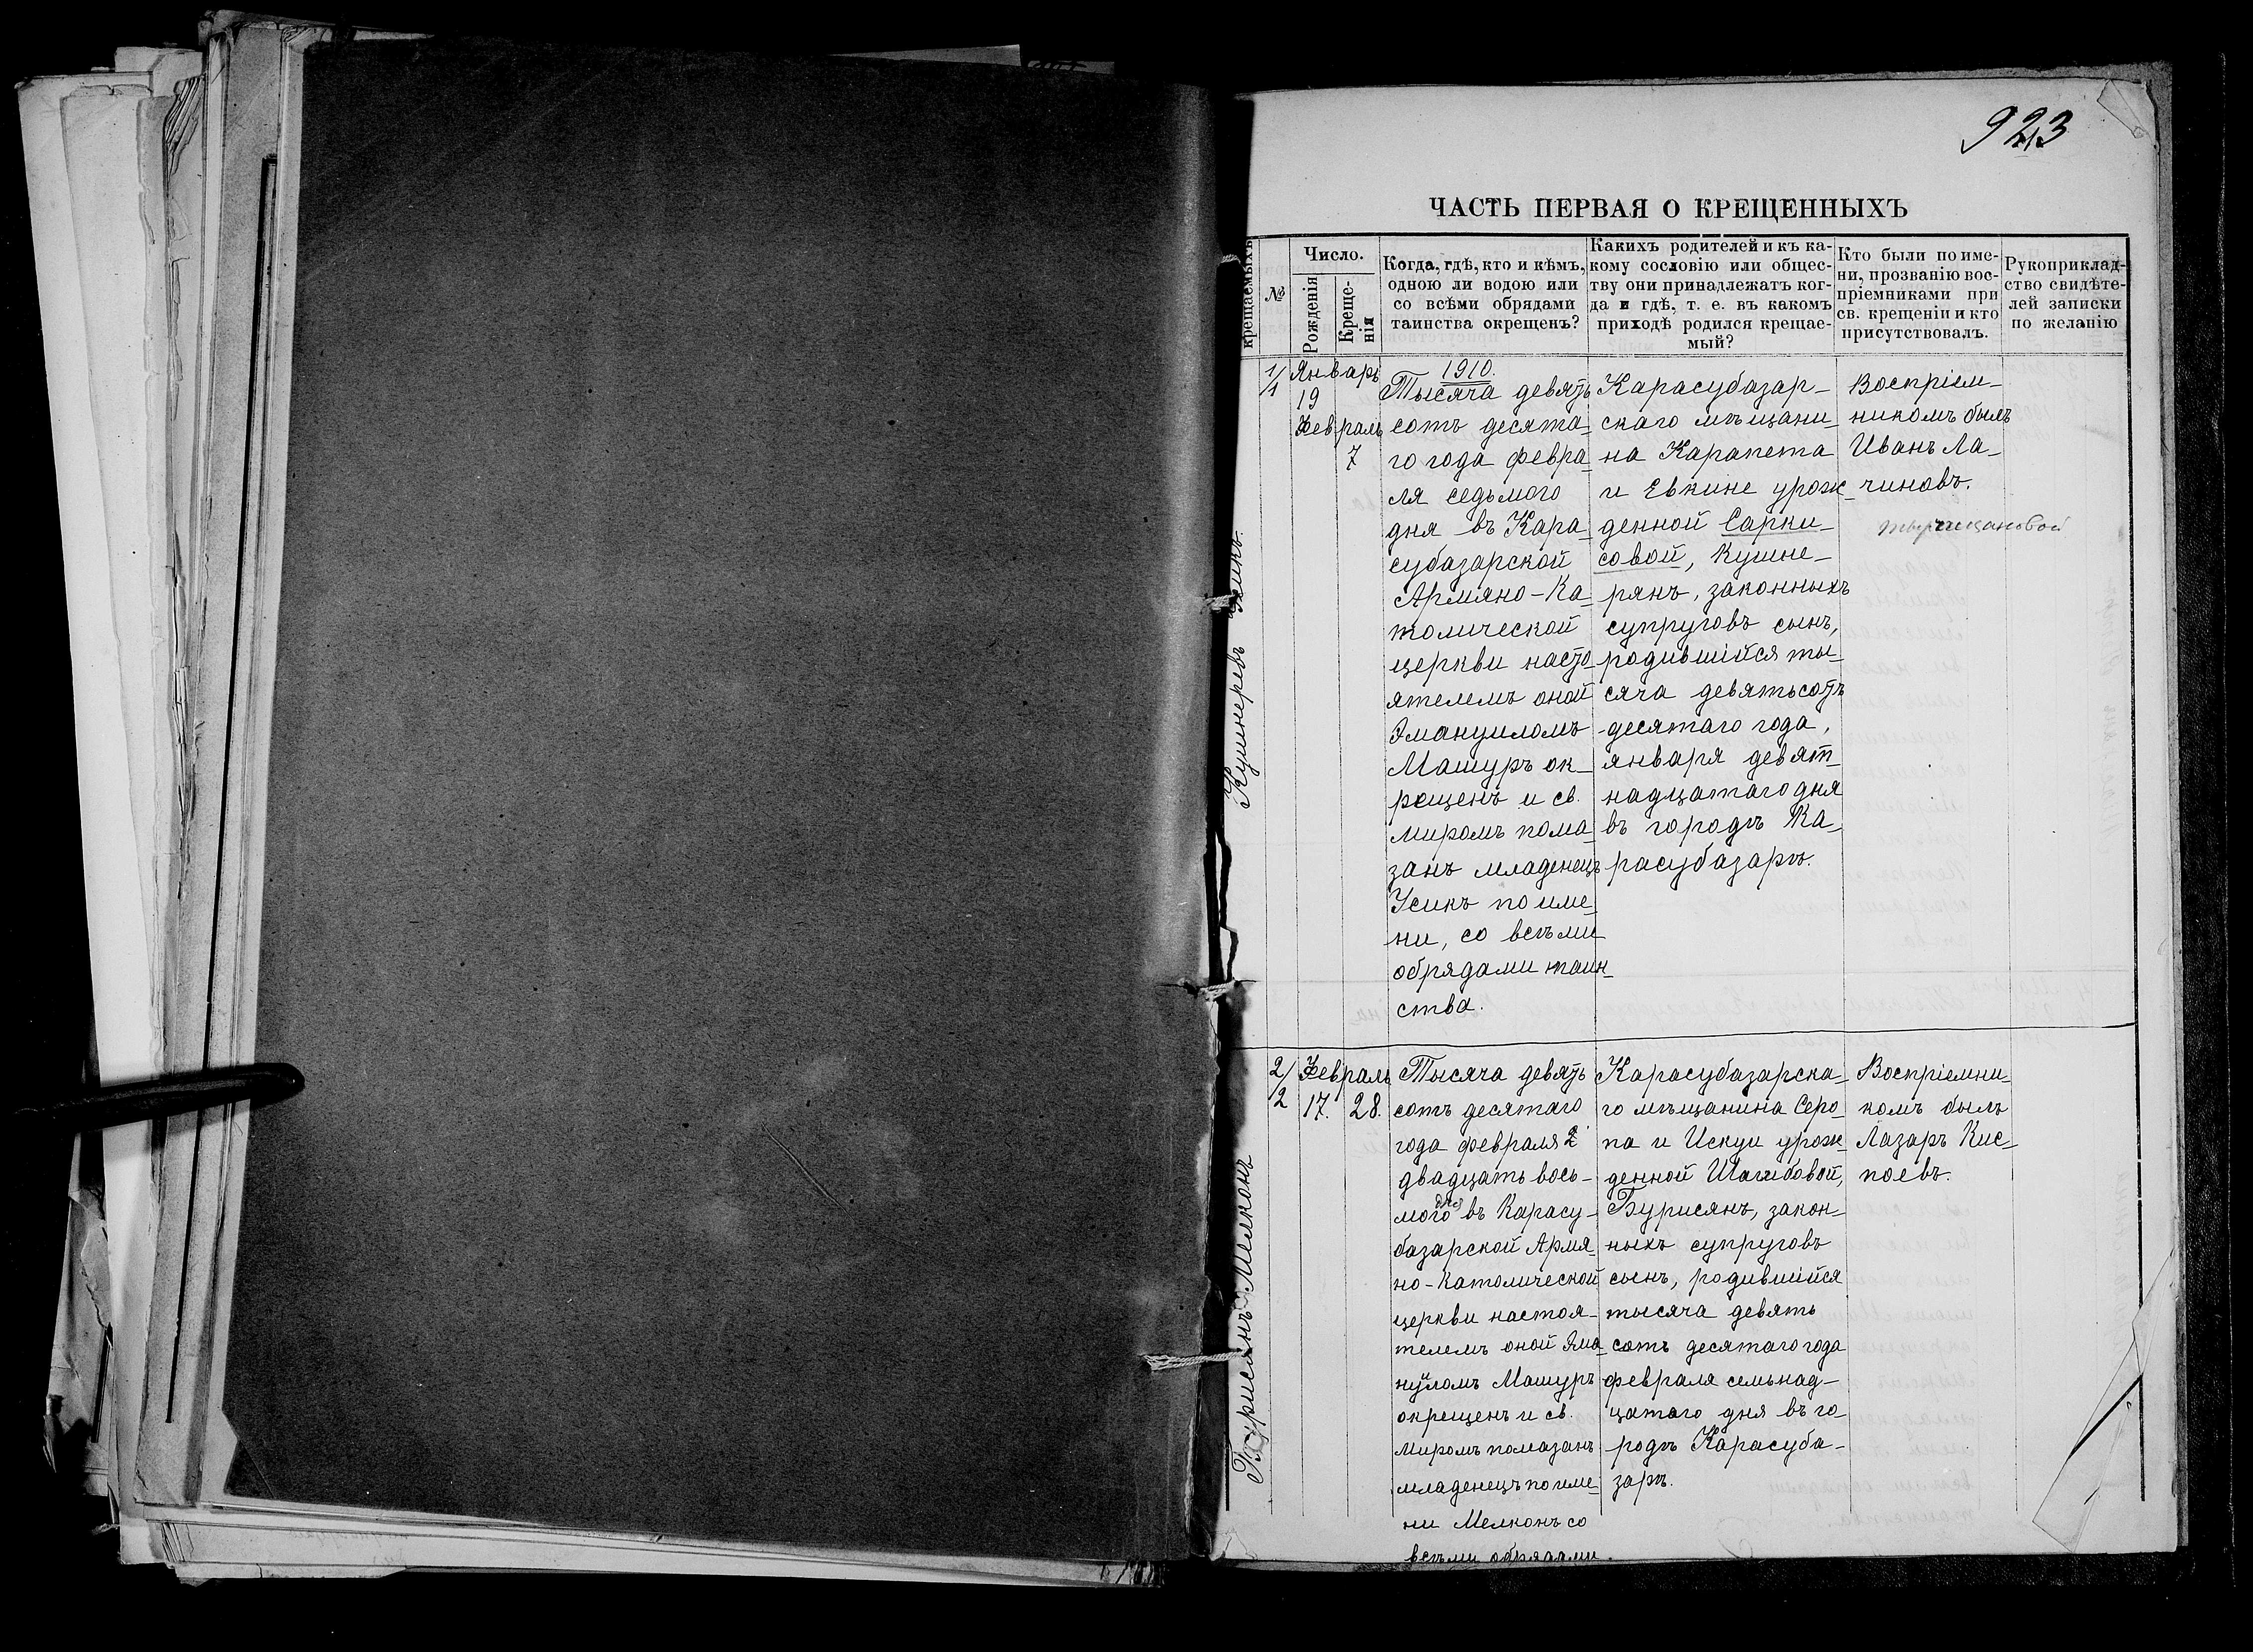 923
ЧАСТЬ ПЕРВАЯ О КРЕЩЕННЫХЪ
крещаемыхъ
№
Число.
Рожденія
Креще-
нія
Когда, гдѣ, кто и кѣмъ,
одною ли водою или
со всѣми обрядами
таинства окрещенъ?
Какихъ родителей и къ ка-
кому сословію или общес-
тву они принадлежатъ ког-
да и гдѣ, т. е. въ какомъ
приходѣ родился крещае-
мый?
Кто были по име-
ни, прозванію вос-
пріемниками при
св. крещеніи и кто
присутствовалъ.
Рукоприклад-
ство свидѣте-
лей записки
по желанію
Кушнеревъ Усикъ.
1/1
Январь
19
Февраль
7
1910.
Тысяча девять
сотъ десята-
го года февра-
ля седьмого
дня въ Кара-
субазарской
Армяно-Ка-
толической
церкви насто-
ятелемъ оной
Эмануиломъ
Машуръ ок-
рещенъ и св.
миромъ пома-
занъ младенецъ
Усикъ по име-
ни, со всѣми
обрядами таин-
ства.
Карасубазар-
скаго мѣщани-
на Карапета
и Евкине урож-
денной Сарки-
совой, Кушне-
рянъ, законныхъ
супруговъ сынъ,
родившійся ты-
сяча девятьсотъ
десятаго года,
января девят-
надцатаго дня
въ городѣ Ка-
расубазарѣ.
Воспріем-
никомъ былъ
Иванъ Ла-
чиновъ.
Бурисянъ Мелконъ
2/2
Февраль
17. 28.
Тысяча девять
сотъ десятаго
года февраля 2
двадцать вось-
мого дня въ Карасу-
базарской Армя-
но-католической
церкви настоя-
телемъ оной Эма-
нуиломъ Машуръ
окрещенъ и св.
миромъ помазанъ
младенецъ по име-
ни Мелконъ со
всѣми обрядами.
Карасубазарска-
го мѣщанина Серо-
па и Искуи урож-
денной Шагибовой,
Бурисянъ, закон-
ныхъ супруговъ
сынъ, родившійся
тысяча девять
сотъ десятаго года
февраля семьнад-
цатаго дня въ го-
родѣ Карасуба-
зарѣ.
Воспріемни-
комъ былъ
Лазаръ Кис-
поевъ.